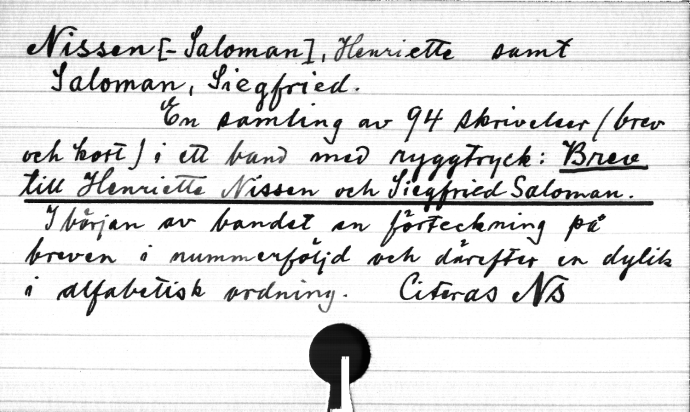 Nissen [- Saloman], Henriette samt
Saloman, Siegfried.
En samling av 94 skrivelser (brev
och kort) i ett band med ryggtryck: Brev
till Henriette Nissen och Siegfried Saloman.
I början av bandet en förteckning på
breven i nummerföljd och därefter en dylik
i alfabetisk ordning. Citeras NS